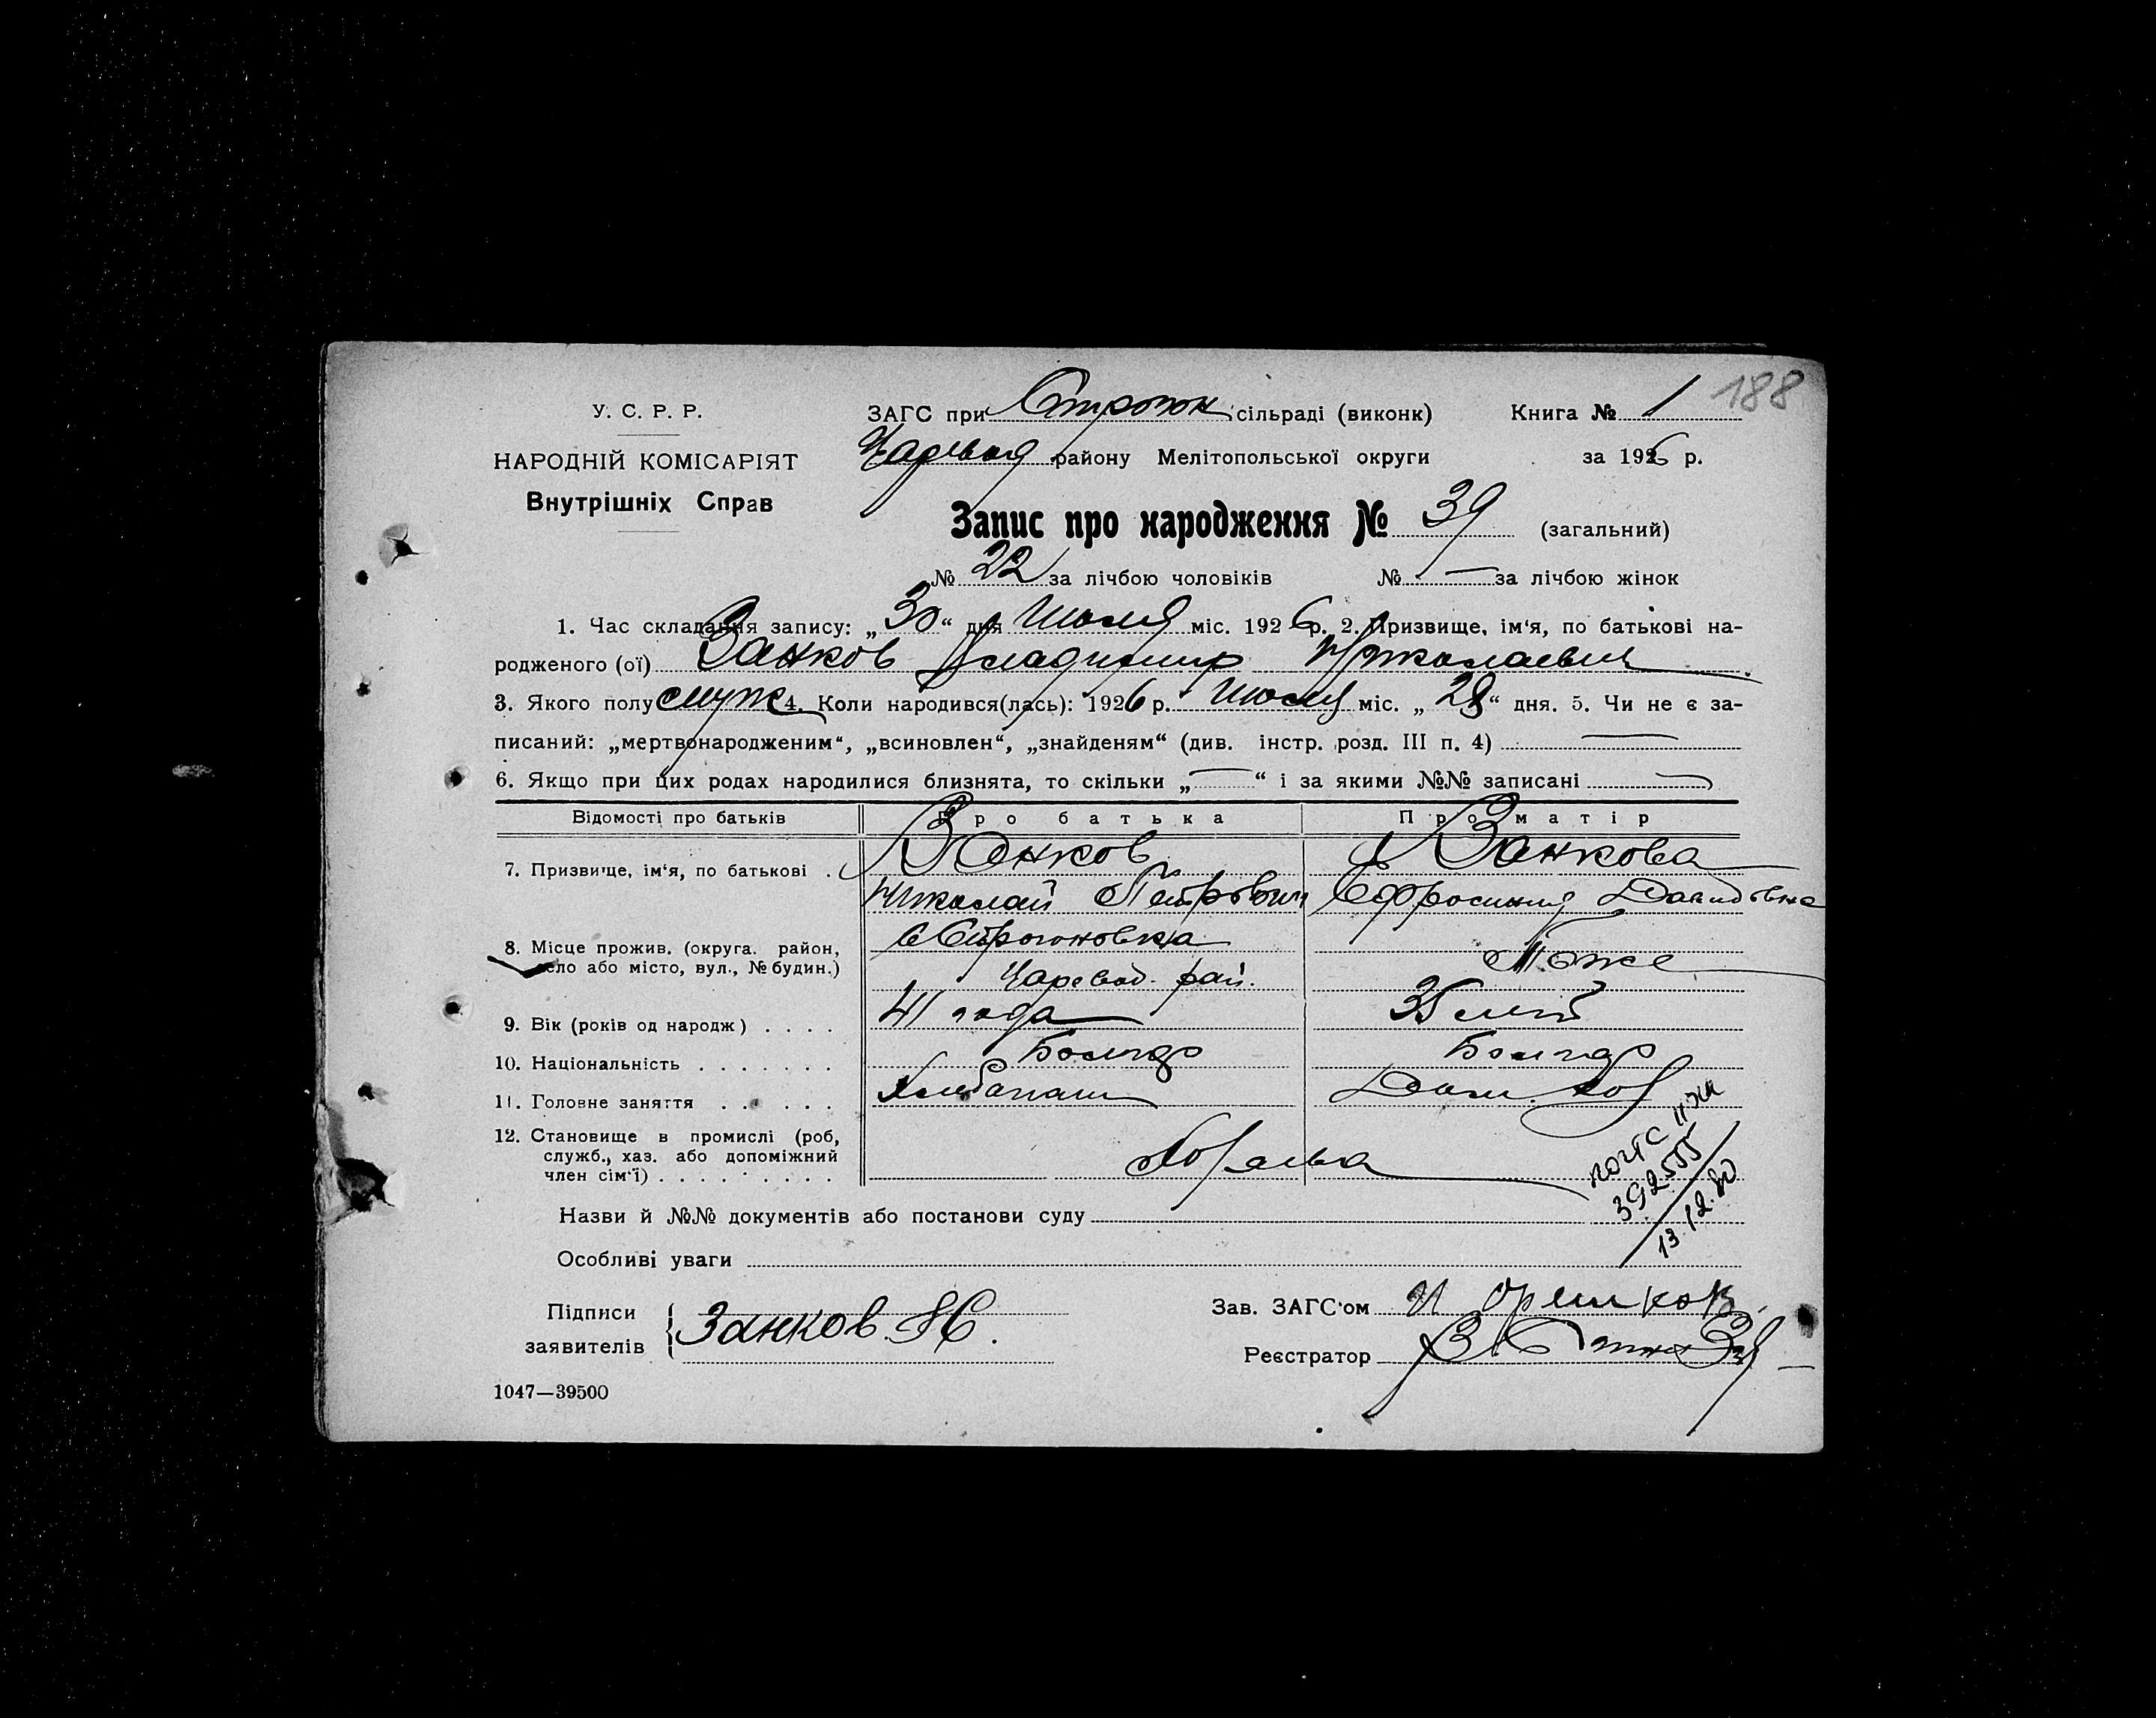 188
У. С. Р. Р.
ЗАГС при Строгон сільраді (виконк) Книга № 1
НАРОДНІЙ КОМІСАРІЯТ
Царевод району Мелітопольської округи за 1926 р.
Внутрішніх Справ
Запис про народження № 39 (загальний)
№ 22 за лічбою чоловіків № — за лічбою жінок
1. Час складання запису: „30“ дня Июля міс. 1926 р. 2. Призвище, ім‘я, по батькові на-
родженого (ої) Занков Владимир Николаевич
3. Якого полу муж 4. Коли народився(лась): 1926 р. Июля міс. „28“ дня. 5. Чи не є за-
писаний: „мертвонародженим“, „всиновлен“, „знайденям“ (див. інстр. розд. III п. 4) —
6. Якщо при цих родах народилися близнята, то скільки „—“ і за якими №№ записані —
Відомості про батьків Про батька Про матір
7. Призвище, ім‘я, по батькові . Занков Занкова
Николай Петрович Ефросиния Давидовна
8. Місце прожив. (округа. район, с Строгоновка
село або місто, вул., № будин.) Царевод. рай. Тоже
9. Вік (років од народж) . . . . 41 года 35 лет
10. Національність . . . . . . . Болгар Болгар
11. Головне заняття . . . . . . Хлебопаш Дом. хоз
12. Становище в промислі (роб,
служб., хаз. або допоміжний
член сім‘ї) . . . . . . . . .
392555
13.12.80
Назви й №№ документів або постанови суду
Особливі уваги
Підписи
заявителів Занков Н.
Зав. ЗАГС‘ом
Реєстратор
1047—39500